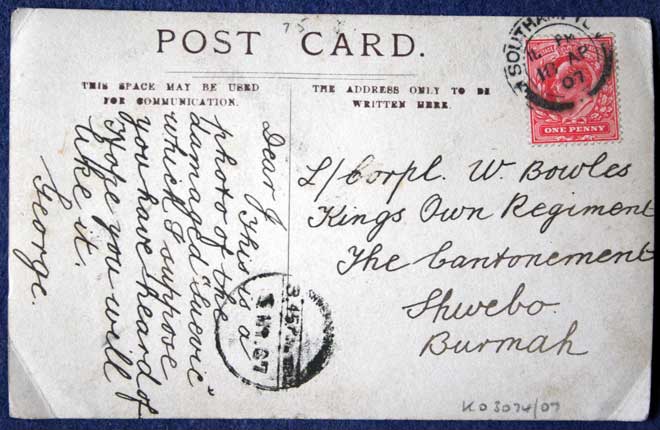 75
POST CARD.
THIS SPACE MAY BE USED
FOR COMMUNICATION.
THE ADDRESS ONLY TO BE
WRITTEN HERE.
Dear J This is a
photo of the
damaged "Suevic"
which I suppose
you have heard of
Hope you will
like it.
George.
L/Corpl. W. Bowles
Kings Own Regiment
The Cantonement
Shwebo.
Burmah
SOUTHAMPTON
AP
07
ONE PENNY
3.45 P.M.
07
KO3074/07